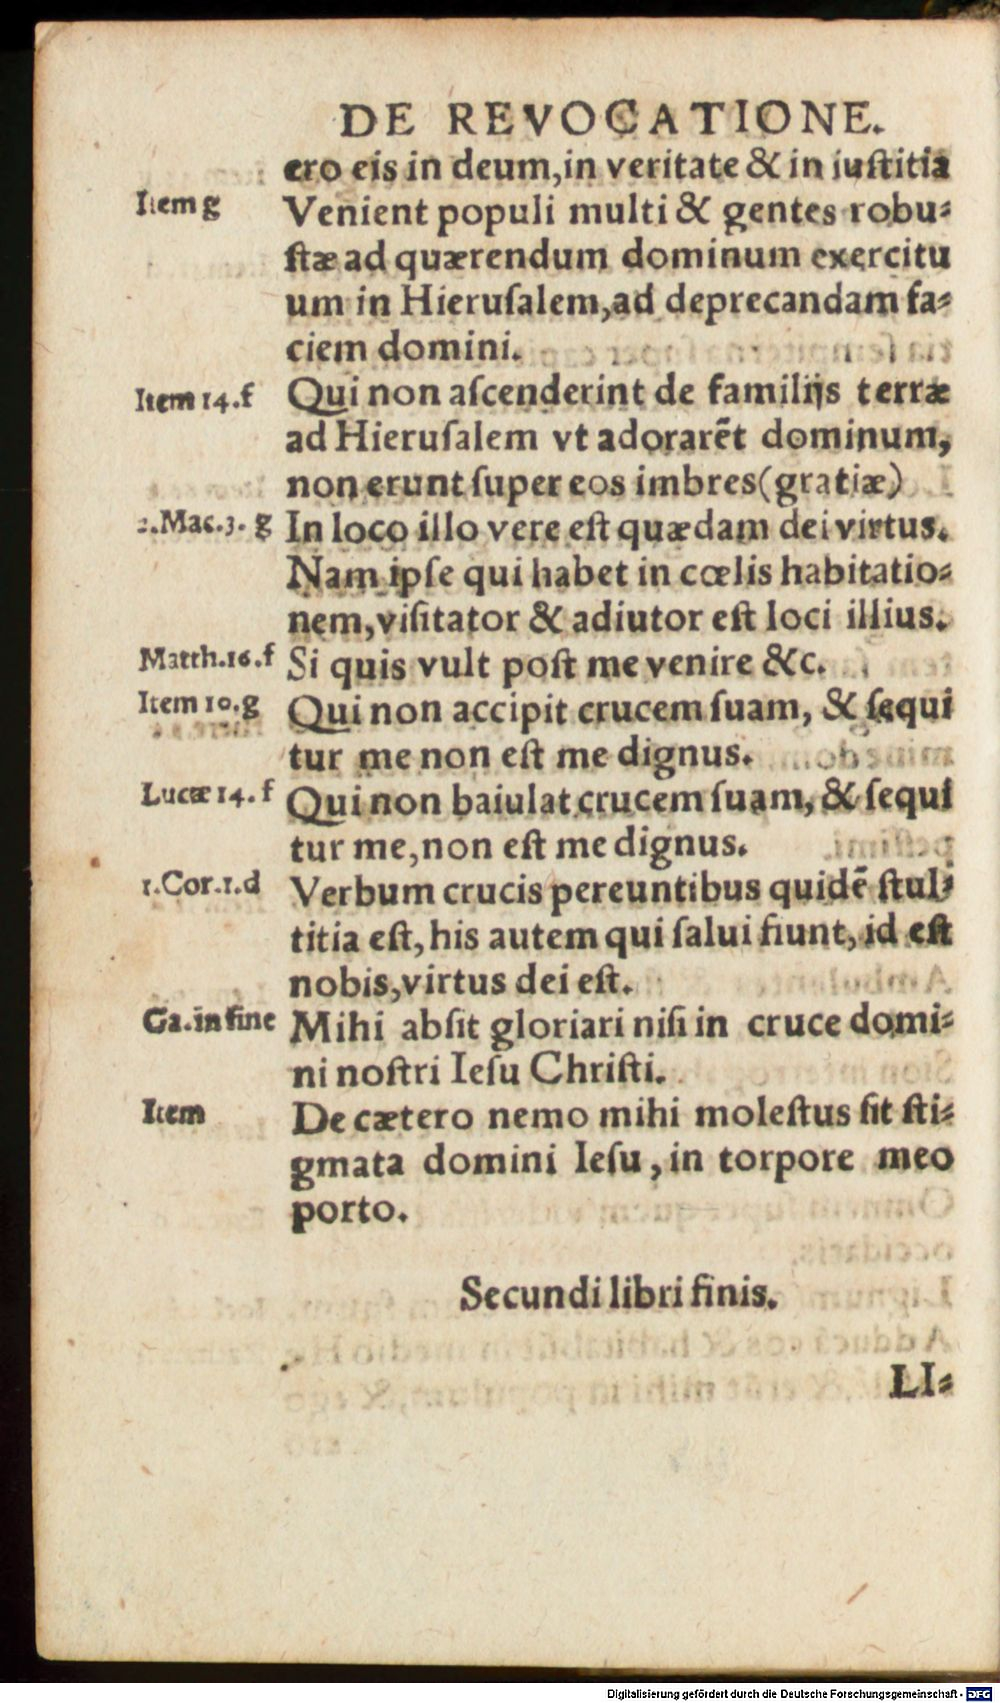 DE REVOCATIONE.
ero eis in deum,in veritate & in iuſtitia
Item g Venient populi multi & gentes robu⸗
ſtæ ad quærendum dominum exercitu
um in Hieruſalem,ad deprecandam fa⸗
ciem domini.
Item 14.f Qui non aſcenderint de familijs terræ
ad Hieruſalem vt adorarēt dominum,
non erunt ſuper eos imbres(gratiæ)
2.Mac.3. g In loco illo vere eſt quædam dei virtus.
Nam ipſe qui habet in cœlis habitatio⸗
nem,viſitator & adiutor eſt loci illius.
Matth.16.f Si quis vult poſt me venire &c.
Item 10.g Qui non accipit crucem ſuam, & ſequi
tur me non eſt me dignus.
Lucæ 14. f Qui non baiulat crucem ſuam, & ſequi
tur me,non eſt me dignus.
1.Cor.1.d Verbum crucis pereuntibus quidē ſtul⸗
titia eſt, his autem qui ſalui fiunt, id eſt
nobis,virtus dei eſt.
Ga.in fine Mihi abſit gloriari niſi in cruce domi⸗
ni noſtri Ieſu Chriſti.
Item De cætero nemo mihi moleſtus ſit ſti⸗
gmata domini Ieſu, in torpore meo
porto.
Secundi libri finis.
LI⸗
Digitalisierung gefördert durch die Deutsche Forschungsgemeinschaft - DFG